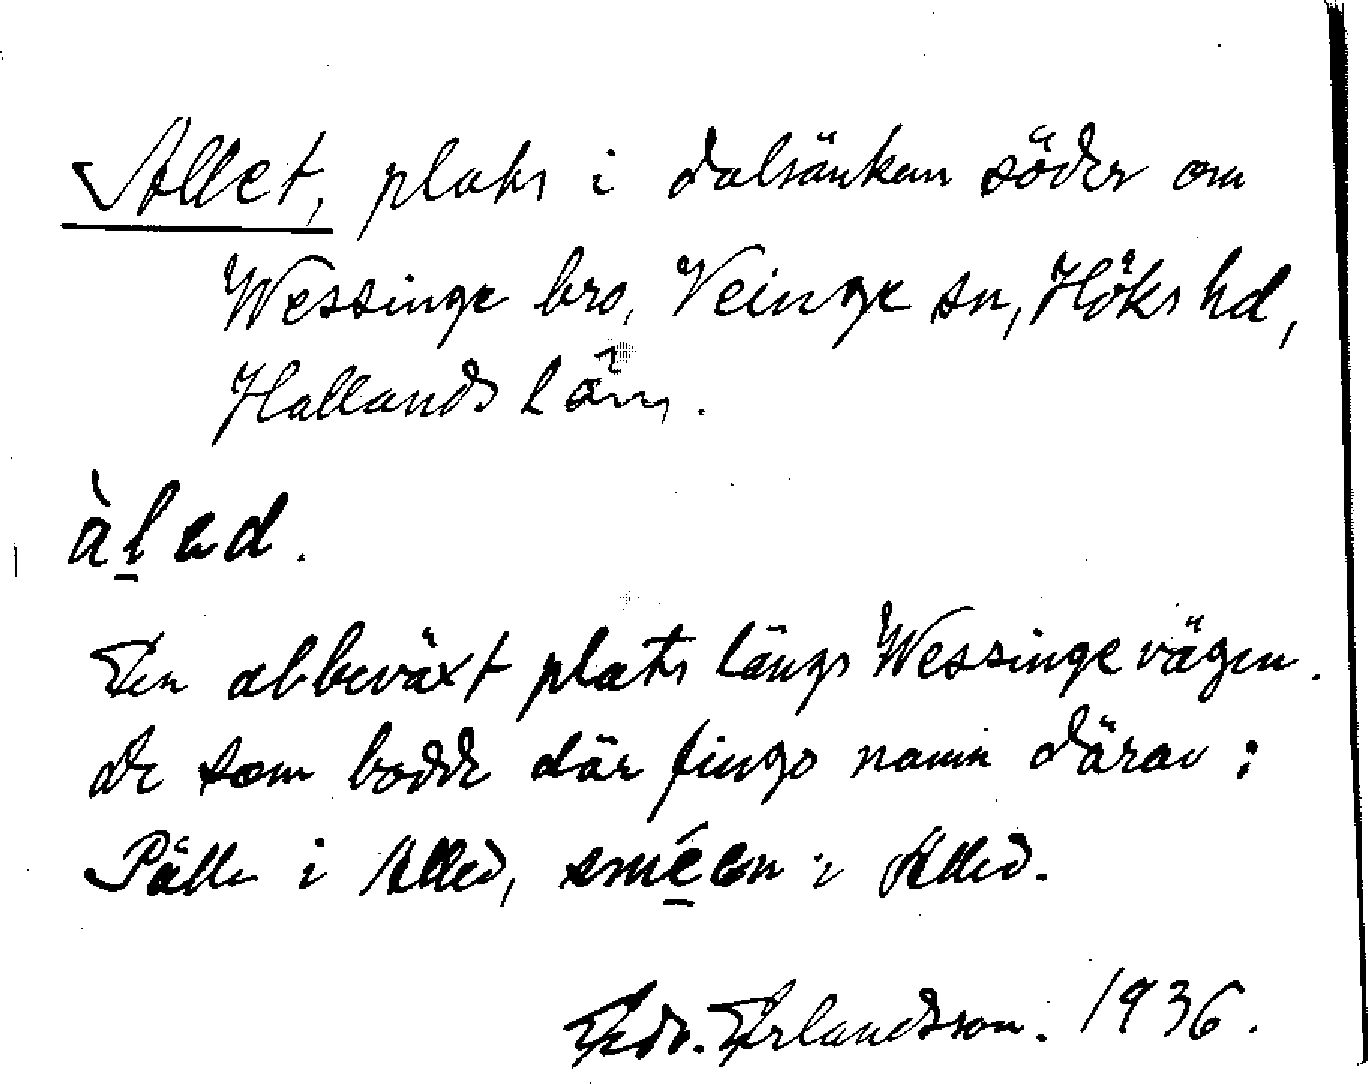 Allet, plats i dalsänkan söder om
Wessinge bro, Veinge sn, Höks hd,
Hallands län.
àlad.
En albeväxt plats längs Wessingevägen.
De som bodde där fingo namn därav:
Pälle i Alled, sméen i Alled.
Erlandsson. 1936.